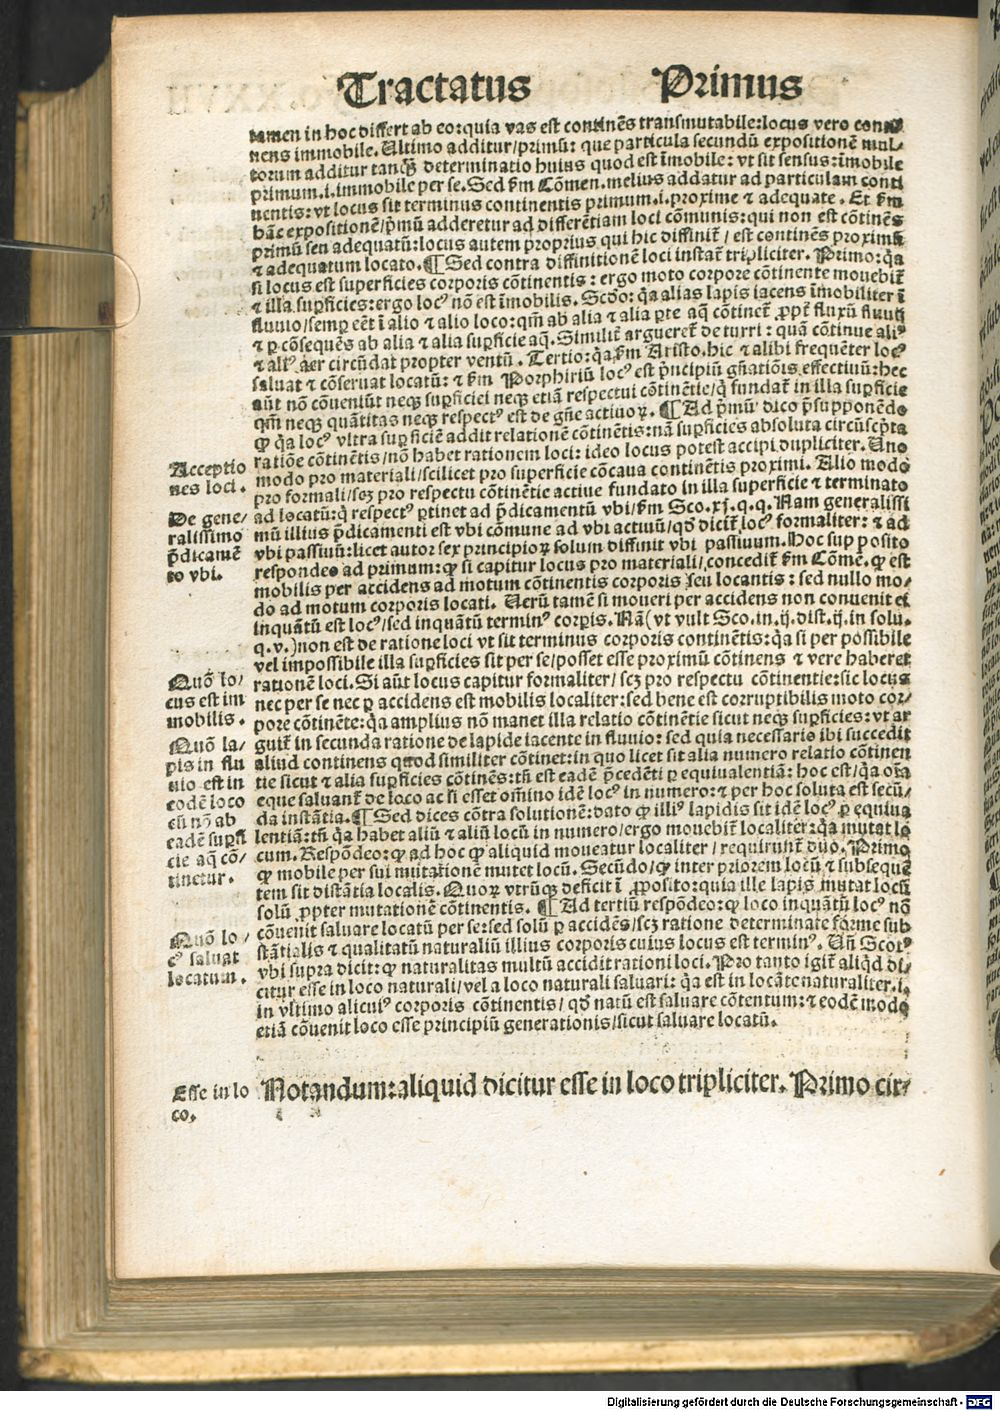 Tractatus Primus
tamen in hoc differt ab eo: quia vas est continēs transmutabile: locus vero conti
nens immobile. Ultimo additur/primū: que particula secundū expositionē mul-
torum additur tanq̄ȝ determinatio huius quod est īmobile: vt sit sensus: īmobile
primum .i. immobile per se. Sed s̄m Cōmen. melius addatur ad particulam conti
nentis: vt locus sit terminus continentis primum .i. proxime ⁊ adequate. Et s̄m
hāc expositionē/p̄mū adderetur ad differētiam loci cōmunis: qui non est cōtinēs
primū seu adequatū: locus autem proprius qui hic diffinit̄/est continēs proximū
⁊ adequatum locato. ¶ Sed contra diffinitionē loci instat̄ tripliciter. Primo: q̄a
si locus est superficies corporis cōtinentis: ergo moto corpore cōtinente mouebit̄
⁊ illa suꝑficies: ergo locꝰ nō est īmobilis. Scd̄o: q̄a alias lapis iacens īmobiliter ī
fluuio/semꝑ eēt ī alio ⁊ alio loco: qm̄ ab alia ⁊ alia ꝑte aq̄ cōtinet̄ ꝓpt̄ fluxū fluuij
⁊ ꝑ cōsequēs ab alia ⁊ alia suꝑficie aq̄. Similit̄ argueret̄ de turri: quā cōtinue aliꝰ
⁊ aliꝰ aer circūdat propter ventū. Tertio: q̄a s̄m Aristo. hic ⁊ alibi frequēter locꝰ
saluat ⁊ cōseruat locatū: ⁊ s̄m Porphiriū locꝰ est p̄ncipiū gn̄atiōis effectiuū: hec
aūt nō cōueniūt neqȝ suꝑficiei neqȝ etiā respectui cōtinētie/q̄ fundat̄ in illa suꝑficie
qm̄ neqȝ quātitas neqȝ respectꝰ est de gn̄e actiuoꝝ. ¶ Ad p̄mū dico p̄supponēdo
ꝙ q̄a locꝰ vltra suꝑficiē addit relationē cōtinētis: nā suꝑficies absoluta circūscp̄ta
ratiōe cōtinētis/nō habet rationem loci: ideo locus potest accipi dupliciter. Uno
modo pro materiali/scilicet pro superficie cōcaua continētis proximi. Alio modo
pro formali/scȝ pro respectu cōtinētie actiue fundato in illa superficie ⁊ terminato
ad locatū: q̄ respectꝰ ꝑtinet ad p̄dicamentū vbi/s̄m Sco. xj. q. q. Nam generalissi
mū illius p̄dicamenti est vbi cōmune ad vbi actiuū/qd̄ dicit̄ locꝰ formaliter: ⁊ ad
vbi passiuū: licet autor sex principioꝝ solum diffinit vbi passiuum. Hoc sup posito
respondeo ad primum: ꝙ si capitur locus pro materiali/concedit̄ s̄m Cōmē. ꝙ est
mobilis per accidens ad motum cōtinentis corporis seu locantis: sed nullo mo-
do ad motum corporis locati. Uerū tamē si moueri per accidens non conuenit ei
inquātū est locꝰ/sed inquātū terminꝰ corpis. Nā (vt vult Sco. in. ij. dist. ij. in solu.
q. v.) non est de ratione loci vt sit terminus corporis continētis: q̄a si per possibile
vel impossibile illa suꝑficies sit per se/posset esse proximū cōtinens ⁊ vere haberet
rationē loci. Si aūt locus capitur formaliter/scȝ pro respectu cōtinentie: sic locus
nec per se nec ꝑ accidens est mobilis localiter: sed bene est corruptibilis moto cor-
pore cōtinēte: q̄a amplius nō manet illa relatio cōtinētie sicut neqȝ suꝑficies: vt ar
guit̄ in secunda ratione de lapide iacente in fluuio: sed quia necessario ibi succedit
aliud continens quod similiter cōtinet: in quo licet sit alia numero relatio cōtinen
tie sicut ⁊ alia suꝑficies cōtinēs: tn̄ est eadē p̄cedēti ꝑ equiualentiā: hoc est/q̄a oīa
eque saluant̄ de loco ac si esset om̄ino idē locꝰ in numero: ⁊ per hoc soluta est secū-
da instātia. ¶ Sed dices cōtra solutionē: dato ꝙ illiꝰ lapidis sit idē locꝰ ꝑ equiua
lentiā: tn̄ q̄a habet aliū ⁊ aliū locū in numero/ergo mouebit̄ localiter: q̄a mutat lo
cum. Respōdeo: ꝙ ad hoc ꝙ aliquid moueatur localiter/requirunt̄ duo. Primo
ꝙ mobile per sui mutationē mutet locū. Secūdo/ꝙ inter priorem locū ⁊ subsequē
tem sit distātia localis. Quoꝝ vtrūqȝ deficit ī ꝓposito: quia ille lapis mutat locū
solū ꝓpter mutationē cōtinentis. ¶ Ad tertiū respōdeo: ꝙ loco inquātū locꝰ nō
cōuenit saluare locatū per se: sed solū ꝑ accidēs/scȝ ratione determinate forme sub
stātialis ⁊ qualitatū naturaliū illius corporis cuius locus est terminꝰ. Un̄ Scotꝰ
vbi supra dicit: ꝙ naturalitas multū accidit rationi loci. Pro tanto igit̄ aliqd̄ di-
citur esse in loco naturali/vel a loco naturali saluari: q̄a est in locāte naturaliter .i.
in vltimo alicuiꝰ corporis cōtinentis/qd̄ natū est saluare cōtentum: ⁊ eodē modo
etiā cōuenit loco esse principiū generationis/sicut saluare locatū.
Notandum: aliquid dicitur esse in loco tripliciter. Primo cir-
Acceptio
nes loci.
De gene-
ralissimo
p̄dicamē
to vbi.
Quō lo-
cus est im
mobilis.
Quō la-
pis in flu
uio est in
eodē loco
cū nō ab
eadē suꝑfi
cie aq̄ cō-
tinetur.
Quō lo-
cꝰ saluat
locatum.
Esse in lo
co.
Digitalisierung gefördert durch die Deutsche Forschungsgemeinschaft - DFG